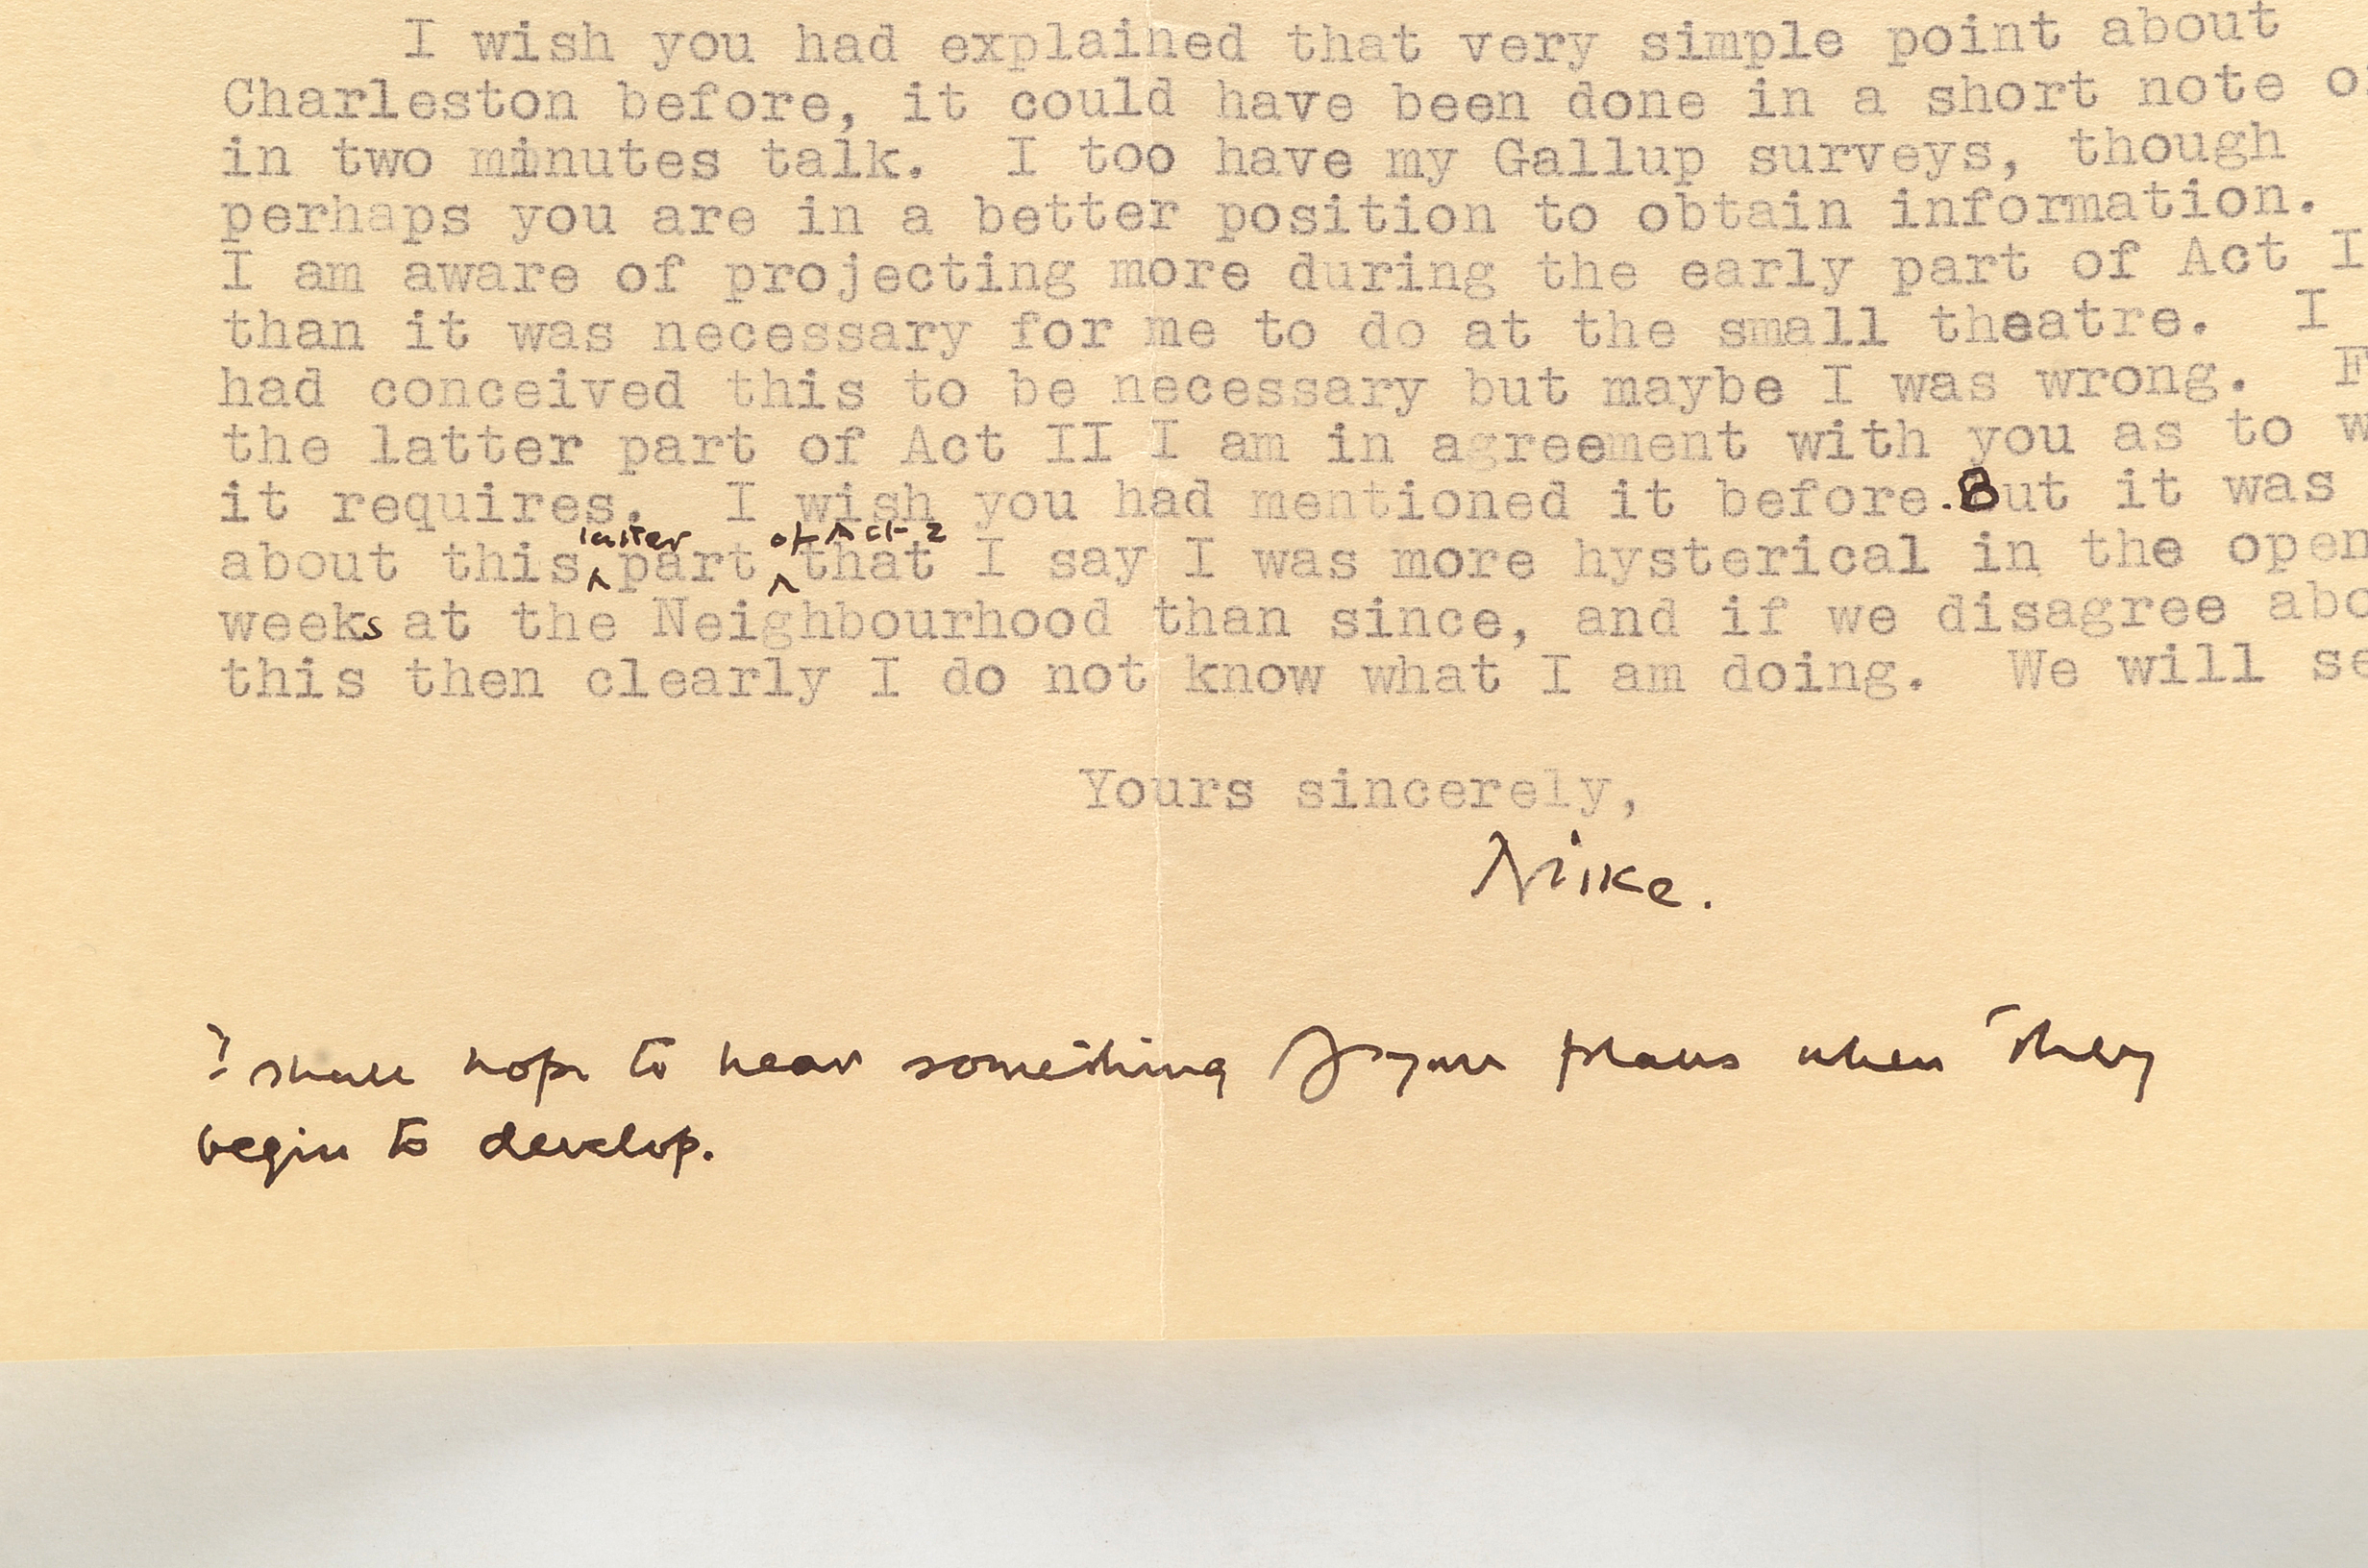 I wish you had explained that very simple point about
Charleston before, it could have been done in a short note
in two minutes talk. I too have my Gallup surveys, though
perhaps you are in a better position to obtain information.
I am aware of projecting more during the early part of Act I
than it was necessary for me to do at the small theatre. I
had conceived this to be necessary but maybe I was wrong.
the latter part of Act II I am in agreement with you as to
it requires. I wish you had mentioned it before. But it was
latter of Act 2
about this part that I say I was more hysterical in the open
weeks at the Neighbourhood than since, and if we disagree
this then clearly I do not know what I am doing. We will
Yours sincerely,
Mike.
I shall hope to hear something of your plans when they
begin to develop.